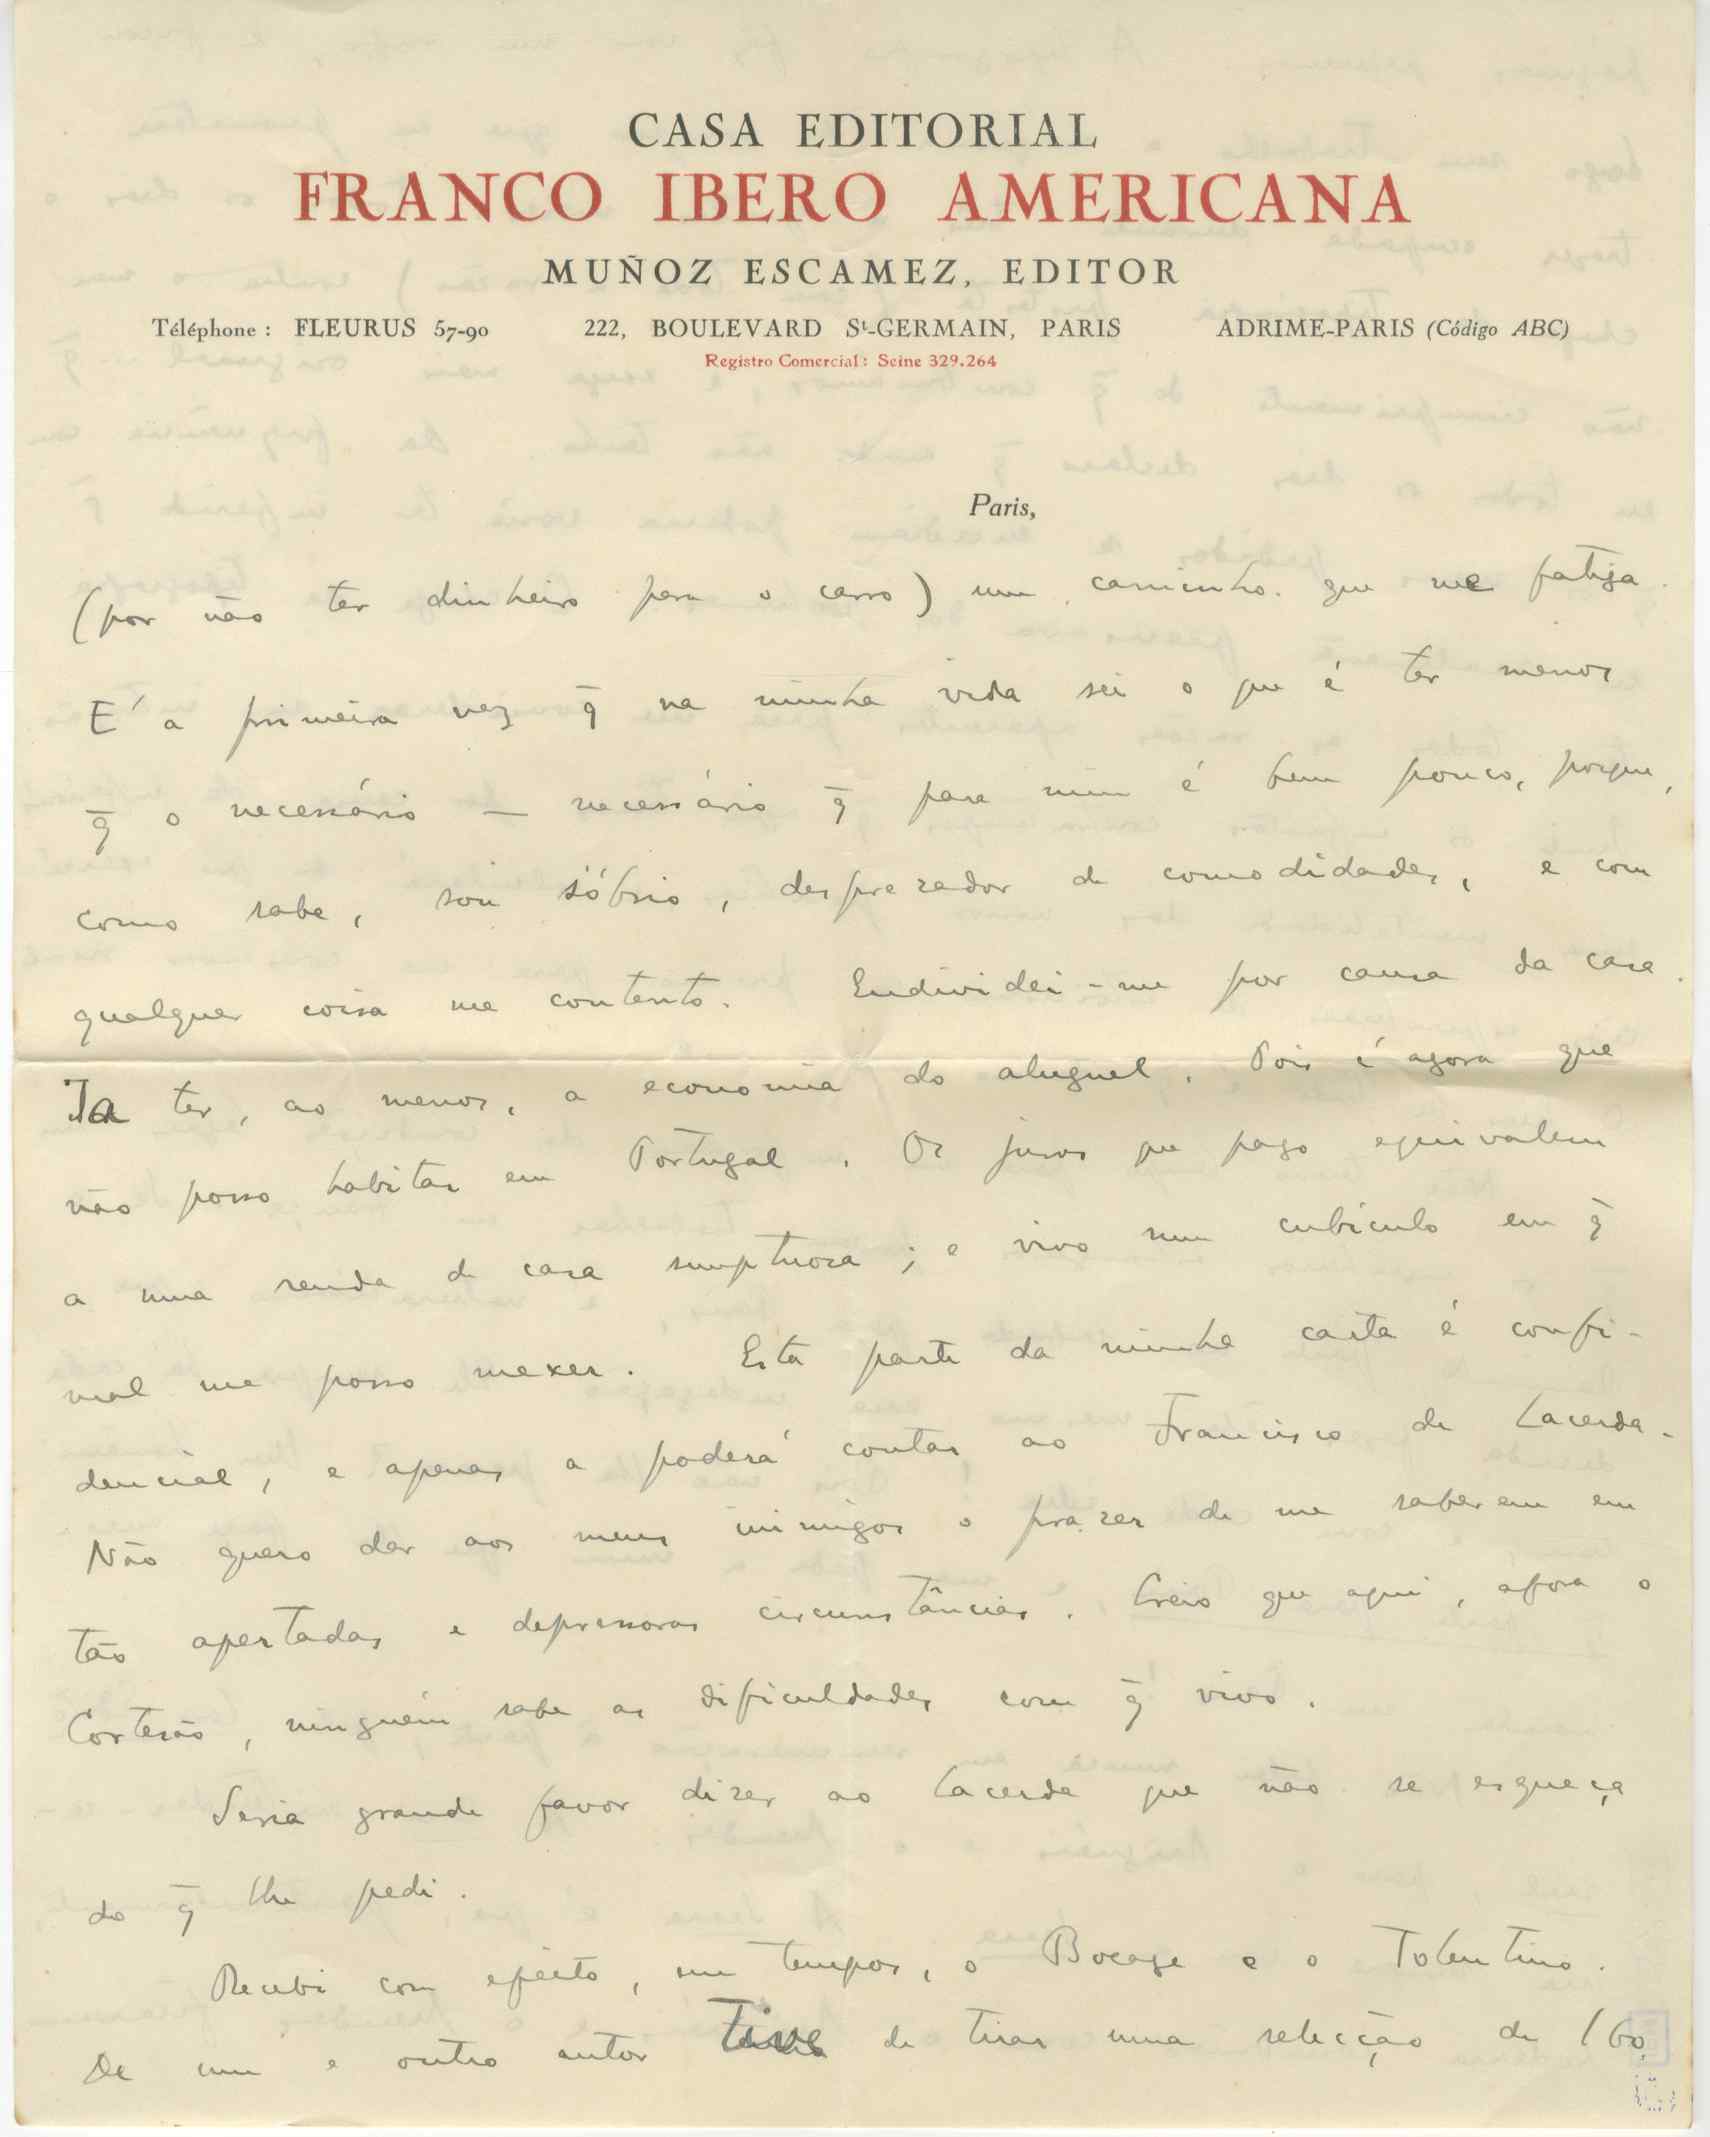 CASA EDITORIAL
FRANCO IBERO AMERICANA
MUÑOZ ESCAMEZ, EDITOR
Téléphone : FLEURUS 57-90 222, BOULEVARD St-GERMAIN, PARIS ADRIME-PARIS (Código ABC)
Registro Comercial : Seine 329.264
Paris,
(por não ter dinheiro para o carro) um caminho que me fatiga.
E' a primeira vez q̄ na minha vida sei o que é ter menos
q̄ o necessário — necessário q̄ para mim é bem pouco, porque,
como sabe, sou sóbrio, desprezador de comodidades, e com
qualquer coisa me contento. Endividei-me por causa da casa.
Ia ter, ao menos, a economia do aluguel. Pois é agora que
não posso habitar em Portugal. Os juros que pago equivalem
a uma renda de casa sumptuosa ; e vivo num cubículo em q̄
mal me posso mexer. Esta parte da minha carta é confi-
dencial, e apenas a poderá contar ao Francisco de Lacerda.
Não quero dar aos meus inimigos o prazer de me saberem em
tão apertadas e depressoras circunstâncias. Creio que aqui, áfora o
Cortesão, ninguém sabe as dificuldades com q̄ vivo.
Seria grande favor dizer ao Lacerda que não se esqueça
do q̄ lhe pedi.
Recebi com efeito, em tempos, o Bocage e o Tolentino.
De um e outro autor tive de tirar uma selecção de 160.